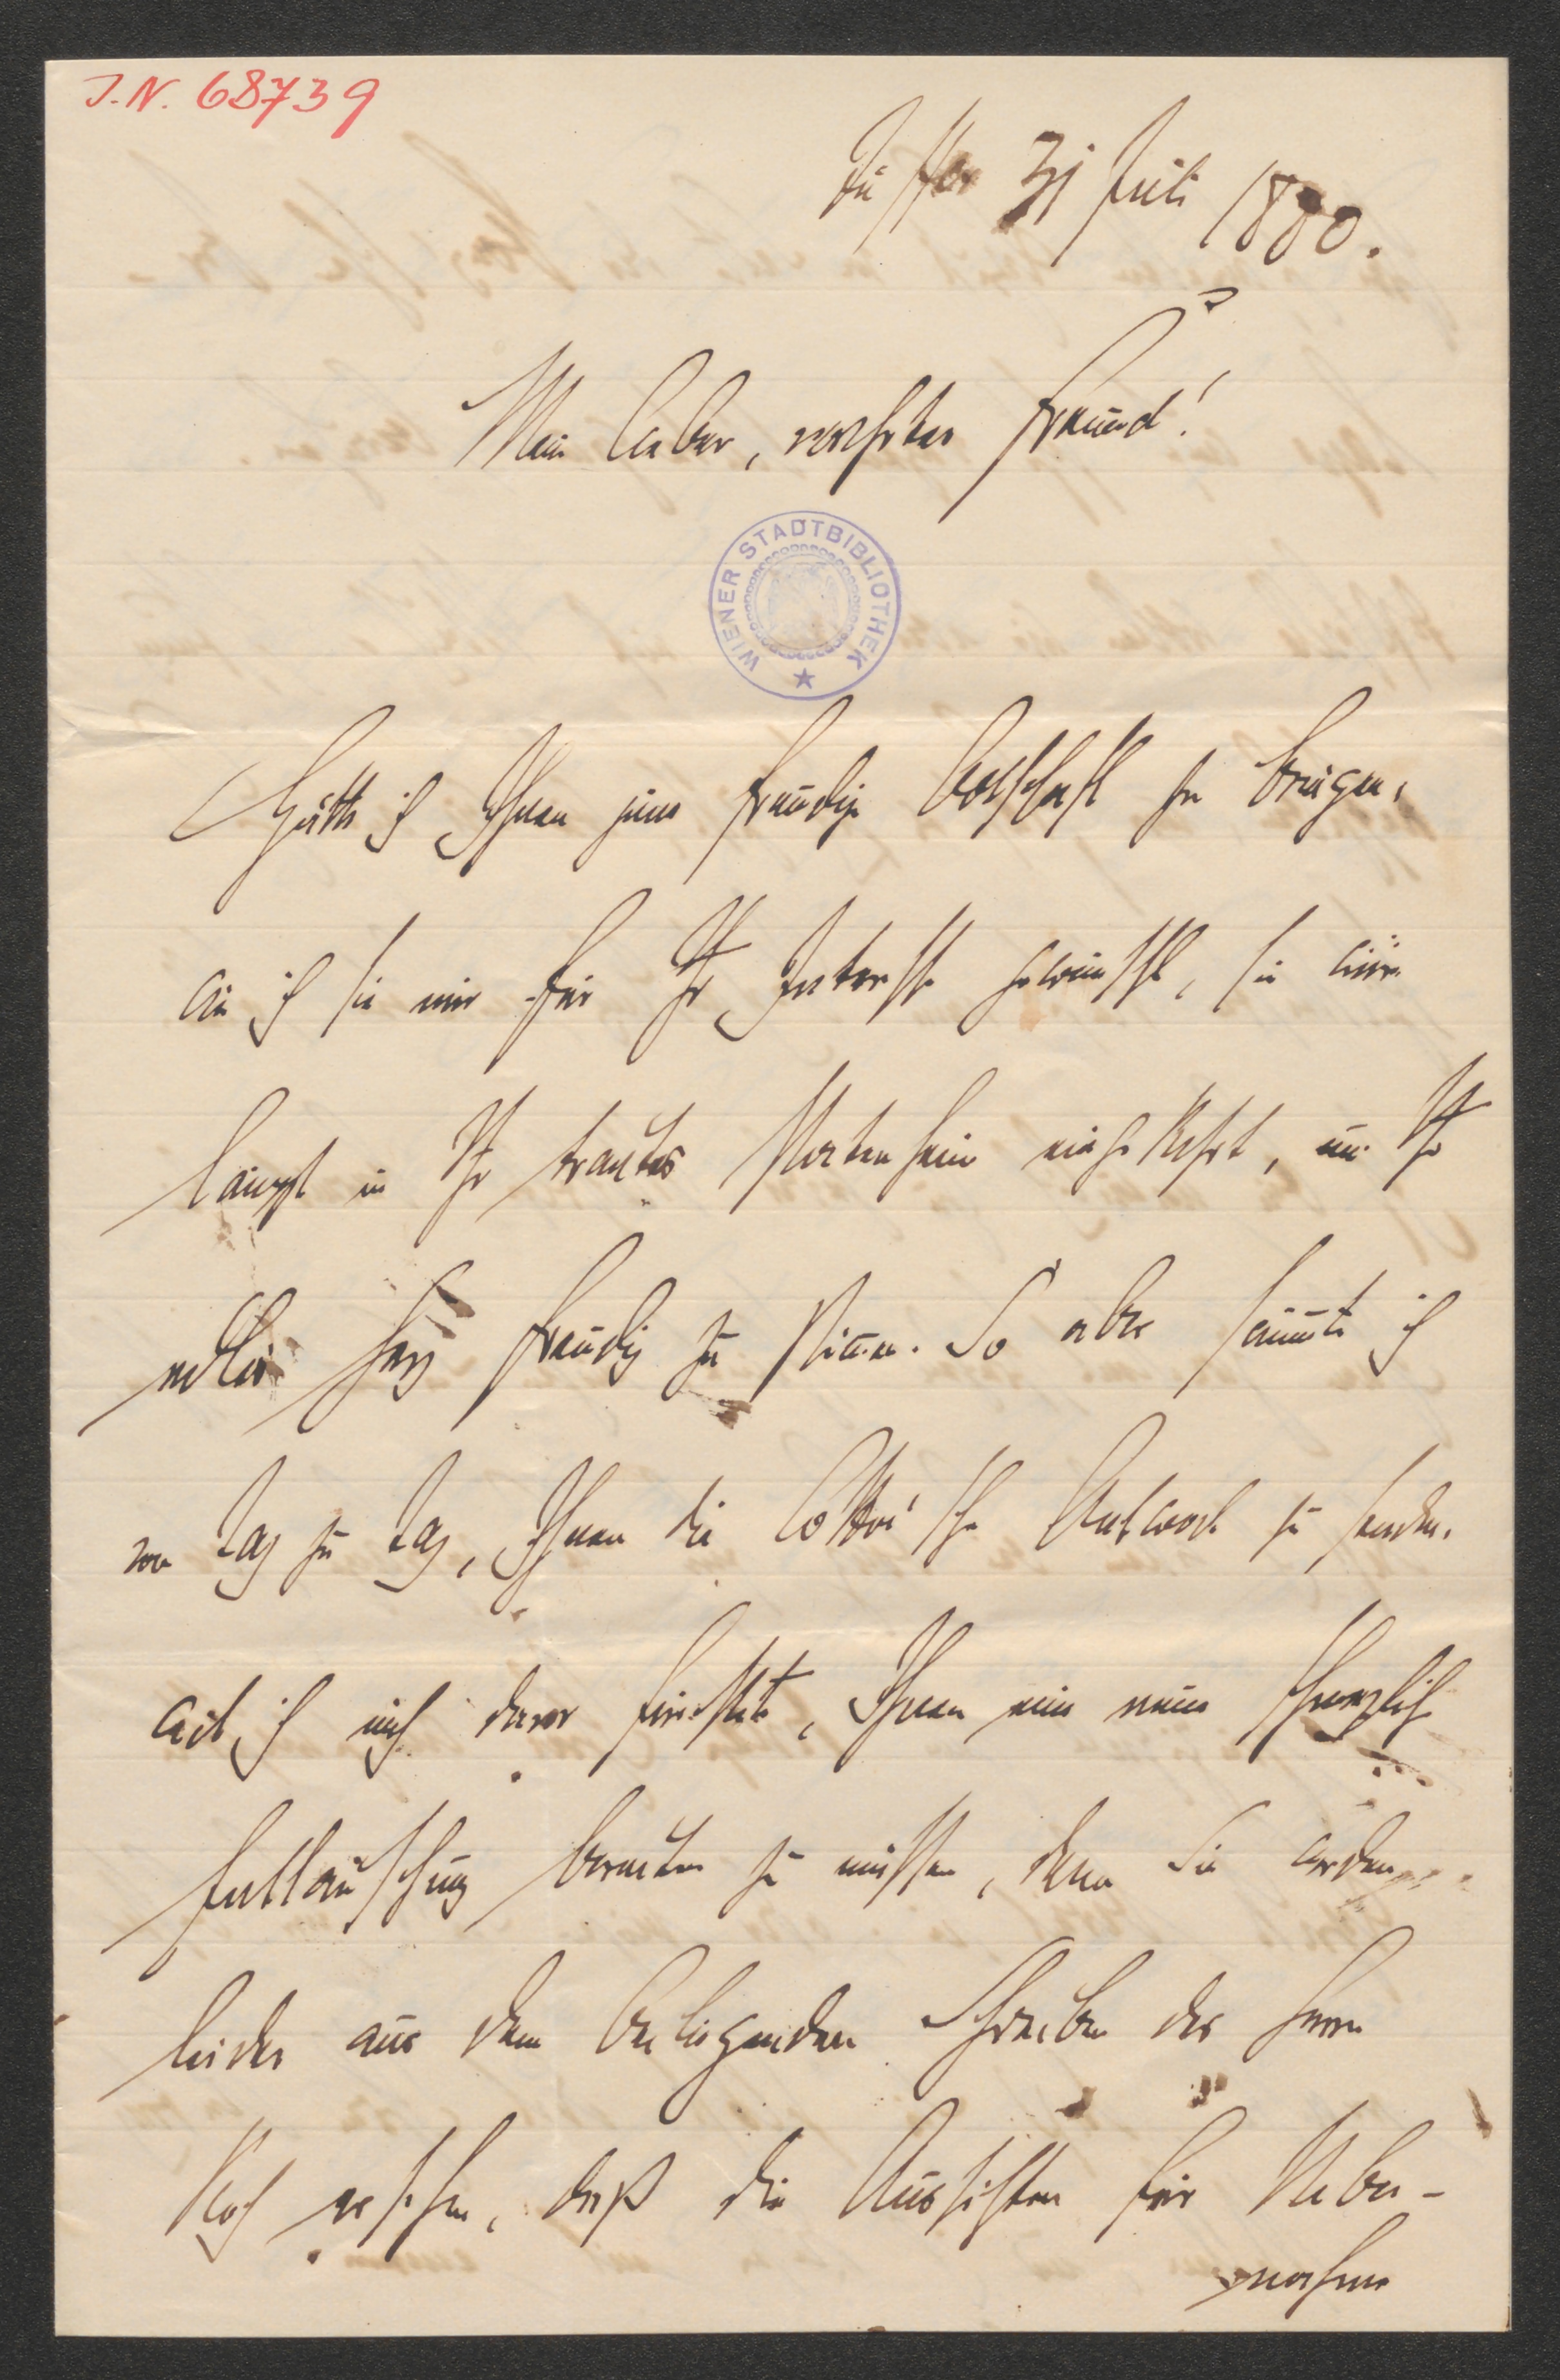 J. N. 68739
Tüffer 31 Juli 1880.
Mein lieber, verehrter Freund!
WIENER STADTBIBLIOTHEK
Hätte ich Ihnen jene freudige Botschaft zu bringen,
wie ich sie mir für Ihr Interesse gewünscht, sie wäre
längst in Ihr trautes eingekehrt, um Ihr
edles Herz freudig zu stimmen. So aber säumte ich
von Tag zu Tag, Ihnen die Cotta'sche Antwort zu senden,
weil ich mich davor fürchtete, Ihnen eine neue schmerzliche
Enttäuschung bereiten zu müssen, denn Sie werden
leider aus dem beiliegenden Schreiben des Herrn
Koch ersehen, daß die Aussichten für Ueber-
nahme